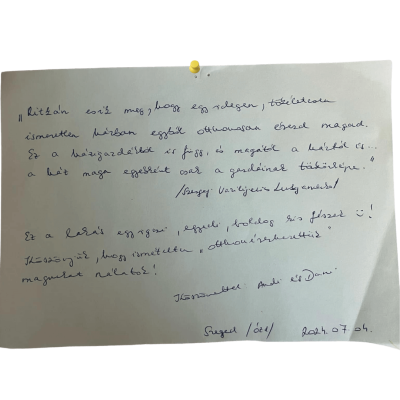 „Ritkán esik meg, hogy egy idegen, tökéletesen
ismeretlen házban egyből otthonosan érezd magad.
Ez a házigazdáktól is függ, és magától a háztól is...
a ház maga egyébként csak a gazdáinak tükörképe."
/Szergej Vasziljevics Lukjanenko/
Ez a lakás egy igazi, egyedi, boldog kis fészek!
Köszönjük, hogy ismételten „otthonérezhettük"
magunkat nálatok!
Köszönettel: Andi és Dani
Szeged /ótt/ 2024.07.04.